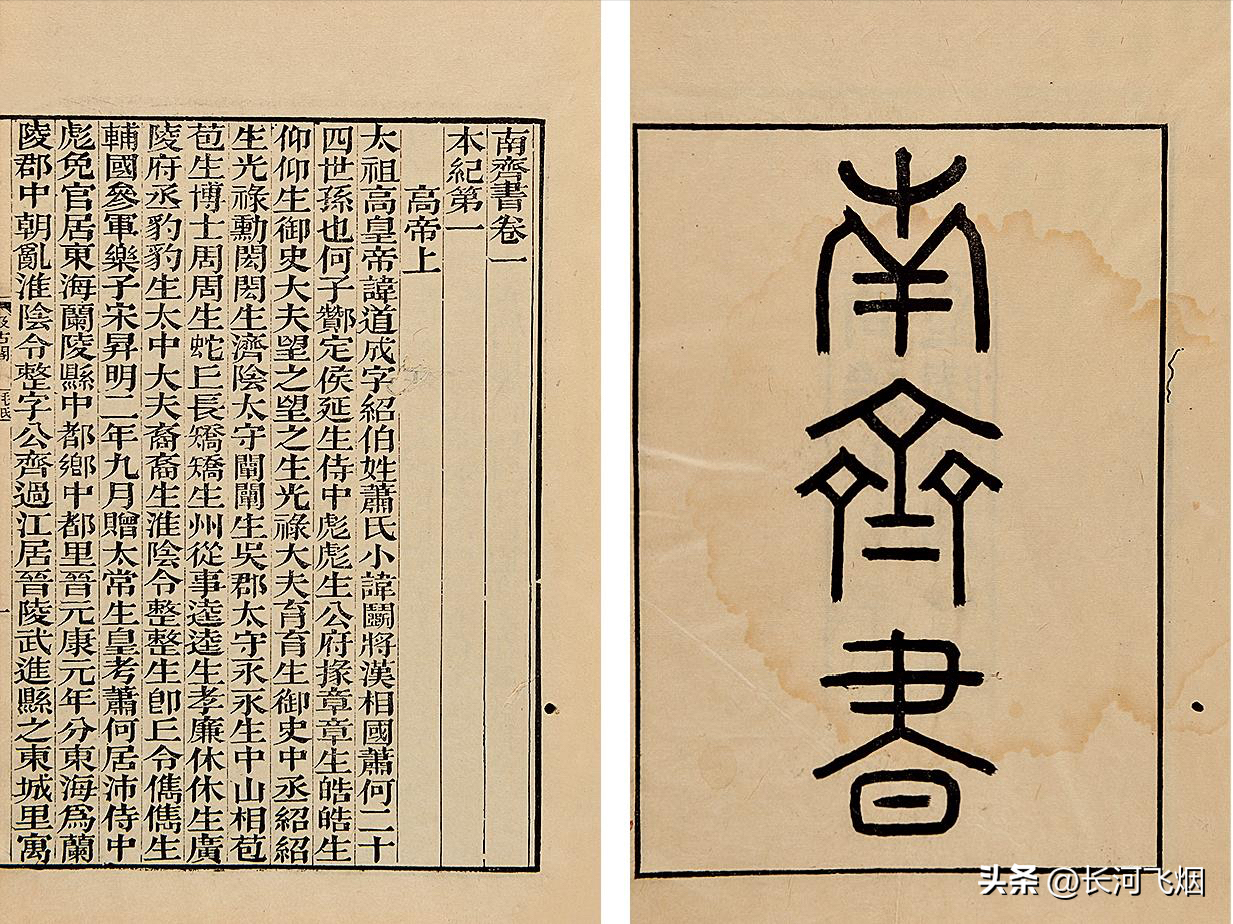 南齊書
南齊書卷一
本紀第一
高帝上
太祖高皇帝諱道成字紹伯姓蕭氏小諱鬭將漢相國蕭何二十
四世孫也何子酇定侯延生侍中彪彪生公府掾章章生皓皓生
仰仰生御史大夫望之望之生光祿大夫育育生御史中丞紹紹
生光祿勳閎閎生濟陰太守闡闡生吳郡太守永永生中山相苞
苞生博士周周生蛇丘長矯矯生州從事逵逵生孝廉休休生廣
陵府丞豹豹生太中大夫裔裔生淮陰令整整生卽丘令儁儁生
輔國參軍樂子宋昇明二年九月贈太常生皇考蕭何居沛侍中
彪免官居東海蘭陵縣中都鄉中都里晉元康元年分東海爲蘭
陵郡中朝亂淮陰令整字公齊過江居晉陵武進縣之東城里寓
头条 @长河飞烟